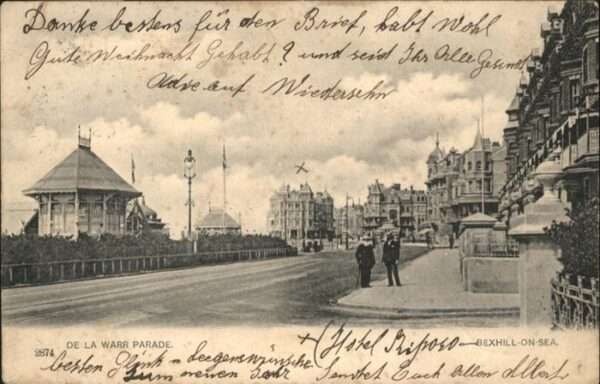 Danke bestens für den Brief, habt Wohl
Gute Weihnacht Gehabt? und seid Ihr Alle Gesund
Adve auf Wiedersehn
x
DE LA WARR PARADE.
+ (Hotel Riposo—
BEXHILL-ON-SEA.
besten Glück = Seegenswünsche
zum neuen Jahr Sendet Euch Allen Albert